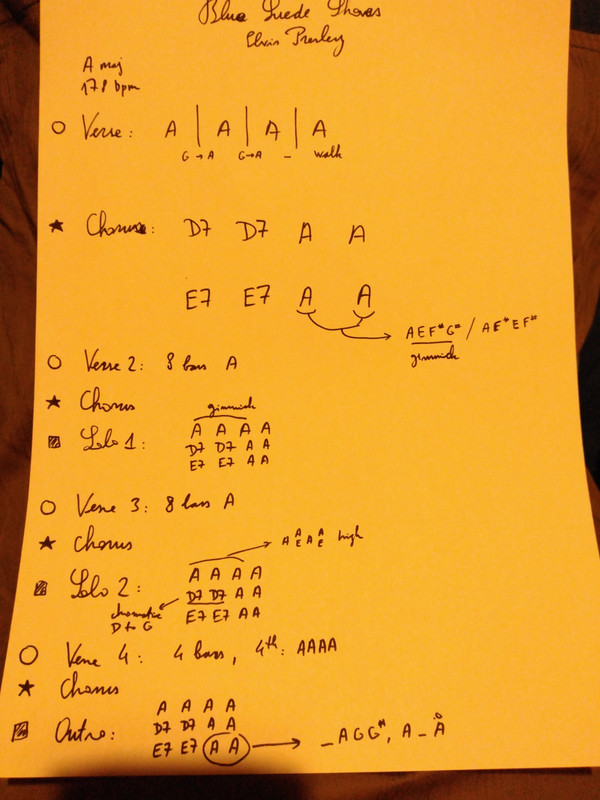 Blue Suede Shoes
Elvis Presley
A maj
178 bpm
Verse: A | A | A | A
G→A G→A – walk
Chorus: D7 D7 A A
E7 E7 A A
AEF#G# / AE#EF#
gimmick
Verse 2: 8 bars A
Chorus
gimmick
Solo 1: A A A A
D7 D7 A A
E7 E7 A A
Verse 3: 8 bars A
Chorus
A A/E A A/E high
Solo 2: A A A A
D7 D7 A A
chromatic
D to G
E7 E7 A A
Verse 4: 4 bars, 4th: AAAA
Chorus
A A A A
Outro: D7 D7 A A
E7 E7 A A → _ A G G#, A _ A